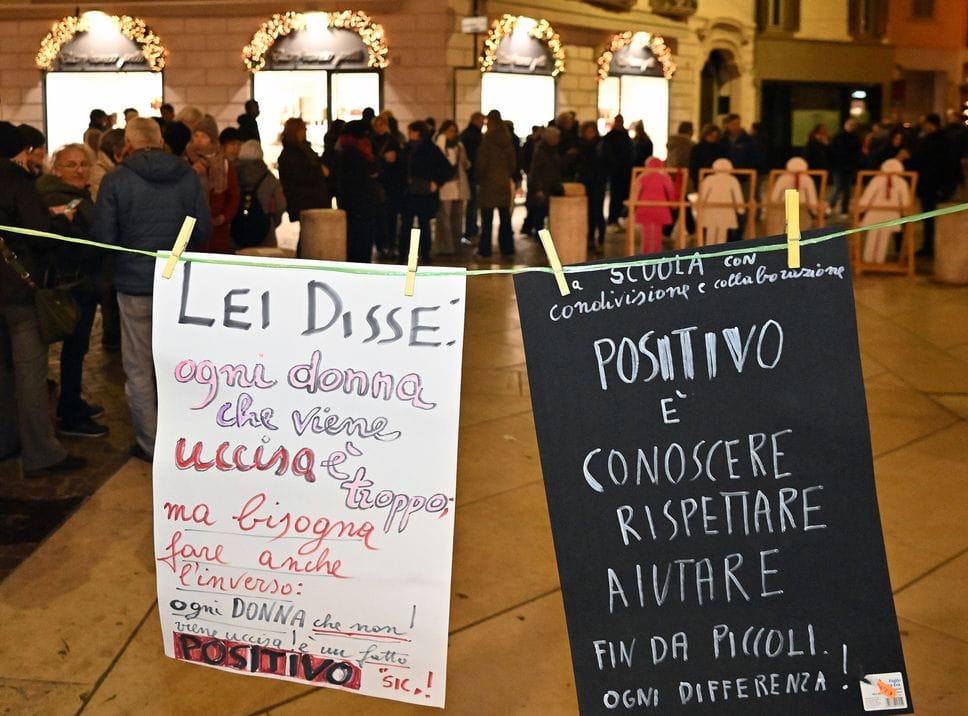 LEI DISSE:
ogni donna
che viene
uccisa è
troppo;
ma bisogna
fare anche
l'inverso:
ogni DONNA che non!
viene uccisa! è un fatto
POSITIVO "SIC.!
SCUOLA CON
condivisione e collaborazione
POSITIVO
È
CONOSCERE
RISPETTARE
AIUTARE
FIN DA PICCOLI.
OGNI DIFFERENZA!